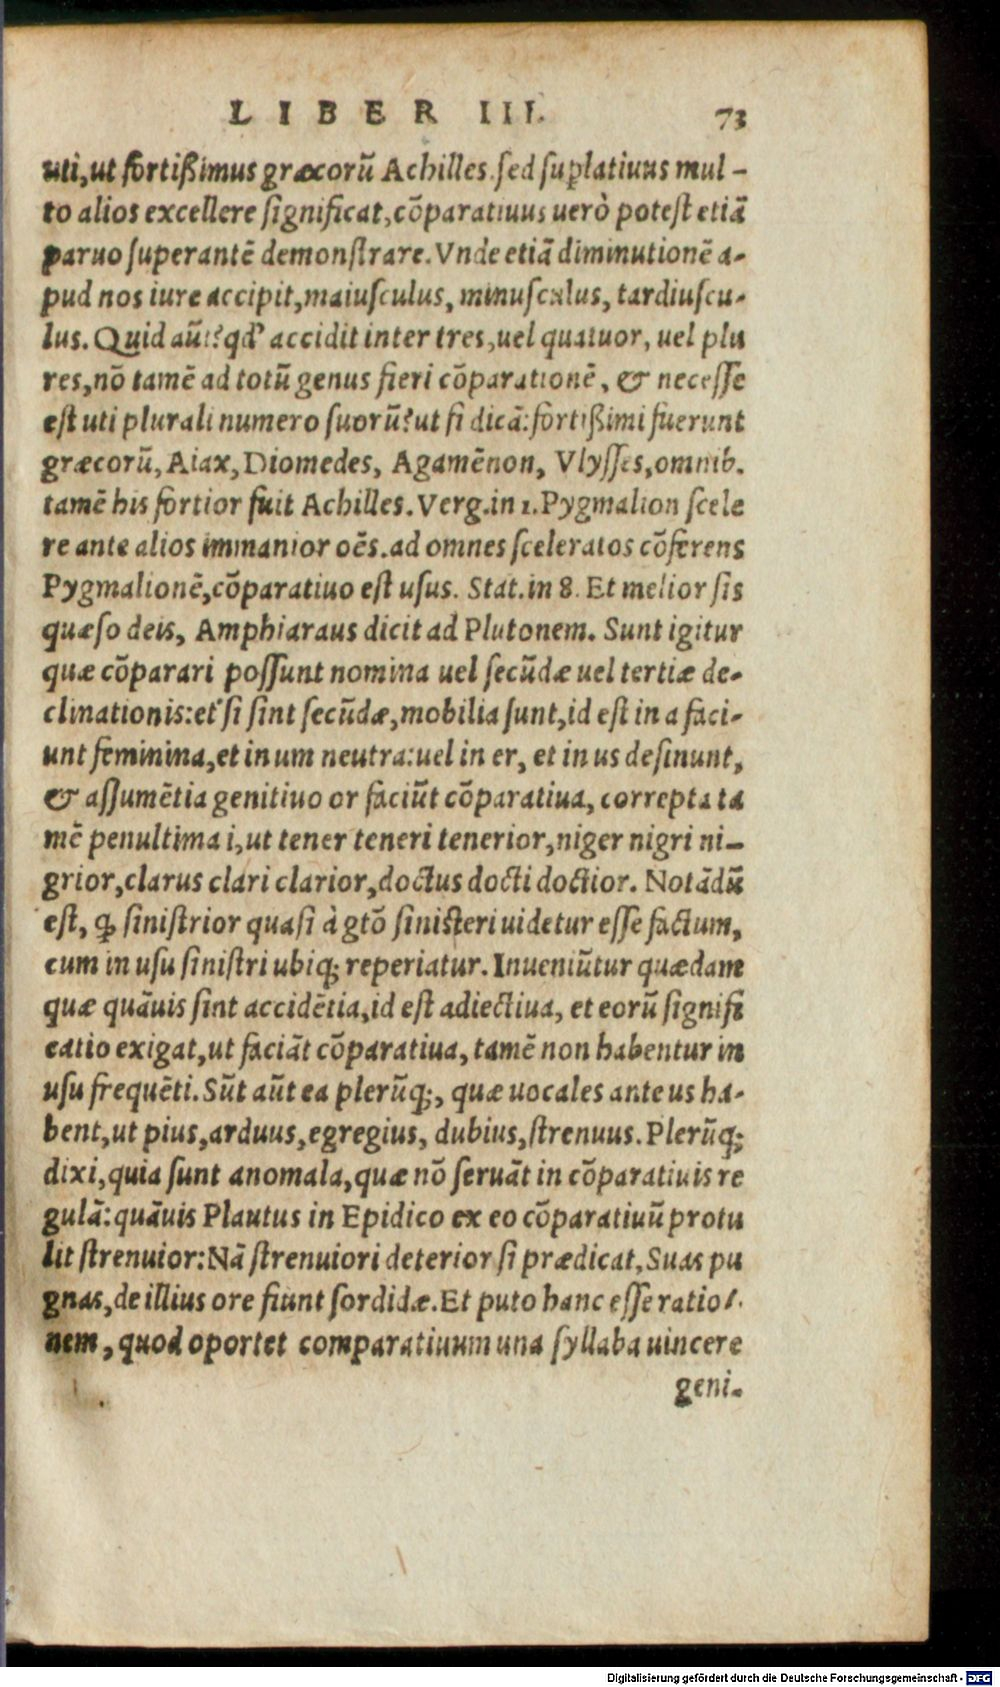 LIBER III. 73
uti, ut fortißimus græcorũ Achilles. ſed ſuplatiuus mul-
to alios excellere ſignificat, cõparatiuus uerò poteſt etiã
paruo ſuperantẽ demonſtrare. Vnde etiã diminutionẽ a-
pud nos iure accipit, maiuſculus, minuſculus, tardiuſcu-
lus. Quid aũt? qd' accidit inter tres, uel quatuor, uel plu
res, nõ tamẽ ad totũ genus fieri cõparationẽ, & neceſſe
eſt uti plurali numero ſuorũ? ut ſi dicã: fortißimi fuerunt
græcorũ, Aiax, Diomedes, Agamẽnon, Vlyſſes, omnib.
tamẽ his fortior fuit Achilles. Verg. in 1. Pygmalion ſcele
re ante alios immanior oẽs. ad omnes ſceleratos cõferens
Pygmalionẽ, cõparatiuo eſt uſus. Stat. in 8. Et melior ſis
quæſo deis, Amphiaraus dicit ad Plutonem. Sunt igitur
quæ cõparari poſſunt nomina uel ſecũdæ uel tertiæ de-
clinationis: et ſi ſint ſecũdæ, mobilia ſunt, id eſt in a faci-
unt feminina, et in um neutra: uel in er, et in us deſinunt,
& aſſumẽtia genitiuo or faciũt cõparatiua, correpta ta
mẽ penultima i, ut tener teneri tenerior, niger nigri ni-
grior, clarus clari clarior, doctus docti doctior. Notãdũ
eſt, ꝙ ſiniſtrior quaſi à gtõ ſiniſteri uidetur eſſe factum,
cum in uſu ſiniſtri ubiq; reperiatur. Inueniũtur quædam
quæ quãuis ſint accidẽtia, id eſt adiectiua, et eorũ ſignifi
catio exigat, ut faciãt cõparatiua, tamẽ non habentur in
uſu frequẽti. Sũt aũt ea plerũq;, quæ uocales ante us ha-
bent, ut pius, arduus, egregius, dubius, ſtrenuus. Plerũq;
dixi, quia ſunt anomala, quæ nõ ſeruãt in cõparatiuis re
gulã: quãuis Plautus in Epidico ex eo cõparatiuũ protu
lit ſtrenuior: Nã ſtrenuiori deterior ſi prædicat, Suas pu
gnas, de illius ore fiunt ſordidæ. Et puto hanc eſſe ratio-
nem, quod oportet comparatiuum una ſyllaba uincere
geni-
Digitalisierung gefördert durch die Deutsche Forschungsgemeinschaft - DFG